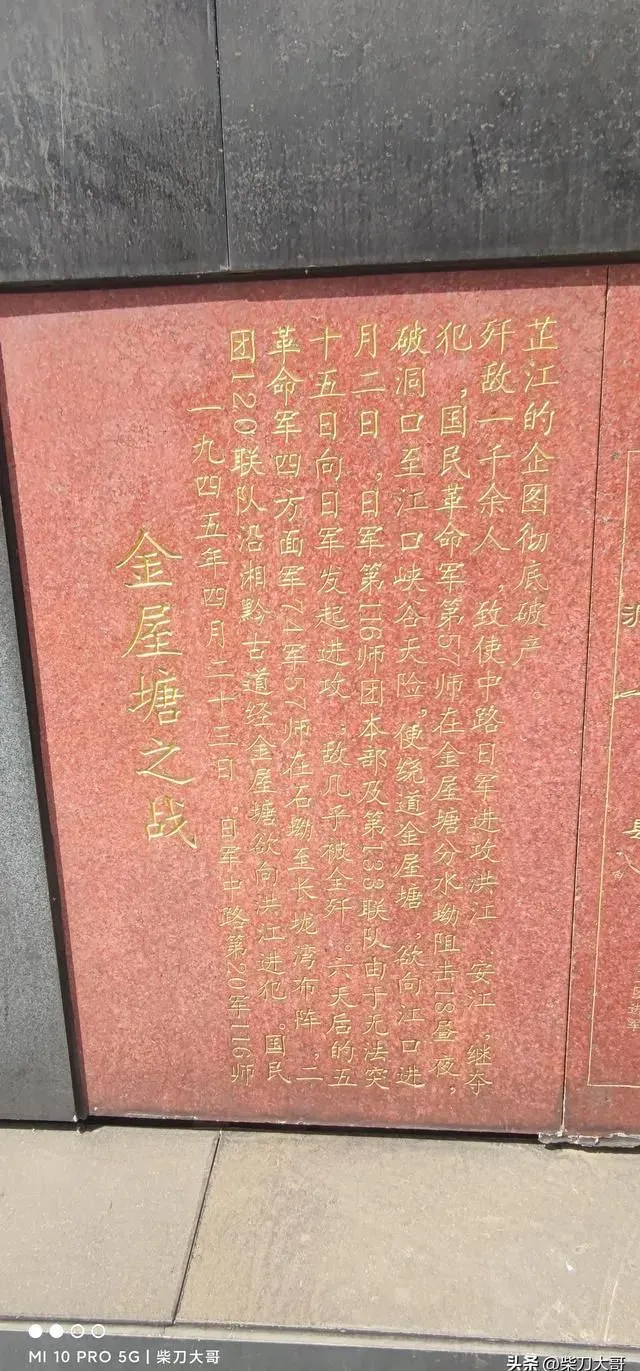 金屋塘之战
一九四五年四月二十三日。日军中路第20军116师
团120联队沿湘黔古道经金屋塘欲向洪江进犯。国民
革命军四方面军74军57师在石坳至长垅湾布阵,二
十五日向日军发起进攻,敌几乎被全歼。六天后的五
月二日,日军第116师团本部及第133联队由于无法突
破洞口至江口峡谷天险,便绕道金屋塘,欲向江口进
犯,国民革命军第57师在金屋塘分水坳阻击18昼夜,
歼敌一千余人,致使中路日军进攻洪江、安江,继夺
芷江的企图彻底破产。
MI 10 PRO 5G | 柴刀大哥
头条 @柴刀大哥